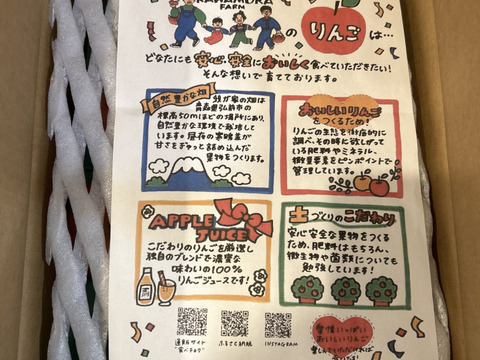 FARM
の りんご は…
どなたにも安心・安全においしく食べていただきたい!
そんな想いで育てております。
自然豊かな畑
我が家の畑は
青森県弘前市の
標高50mほどの場所にあり、
自然豊かな環境で栽培して
います。昼夜の寒暖差が
甘さをぎゅっと詰め込んだ
果物をつくります。
おいしいりんご
をつくるため!
りんごの生態を徹底的に
調べ、その時に欲しがって
いる肥料やミネラル、
微量要素をピンポイントで
管理しています。
APPLE
JUICE
こだわりのりんごを厳選し
独自のブレンドで濃密な
味わいの100%
りんごジュースです!
土づくりのこだわり
安心安全な果物をつくる
ため、肥料はもちろん、
微生物や菌類についても
勉強しています!
通販サイト
"食べチョク"
ふるさと納税
INSTAGRAM
愛情いっぱい
おいしいりんご
楽しんでいただければ